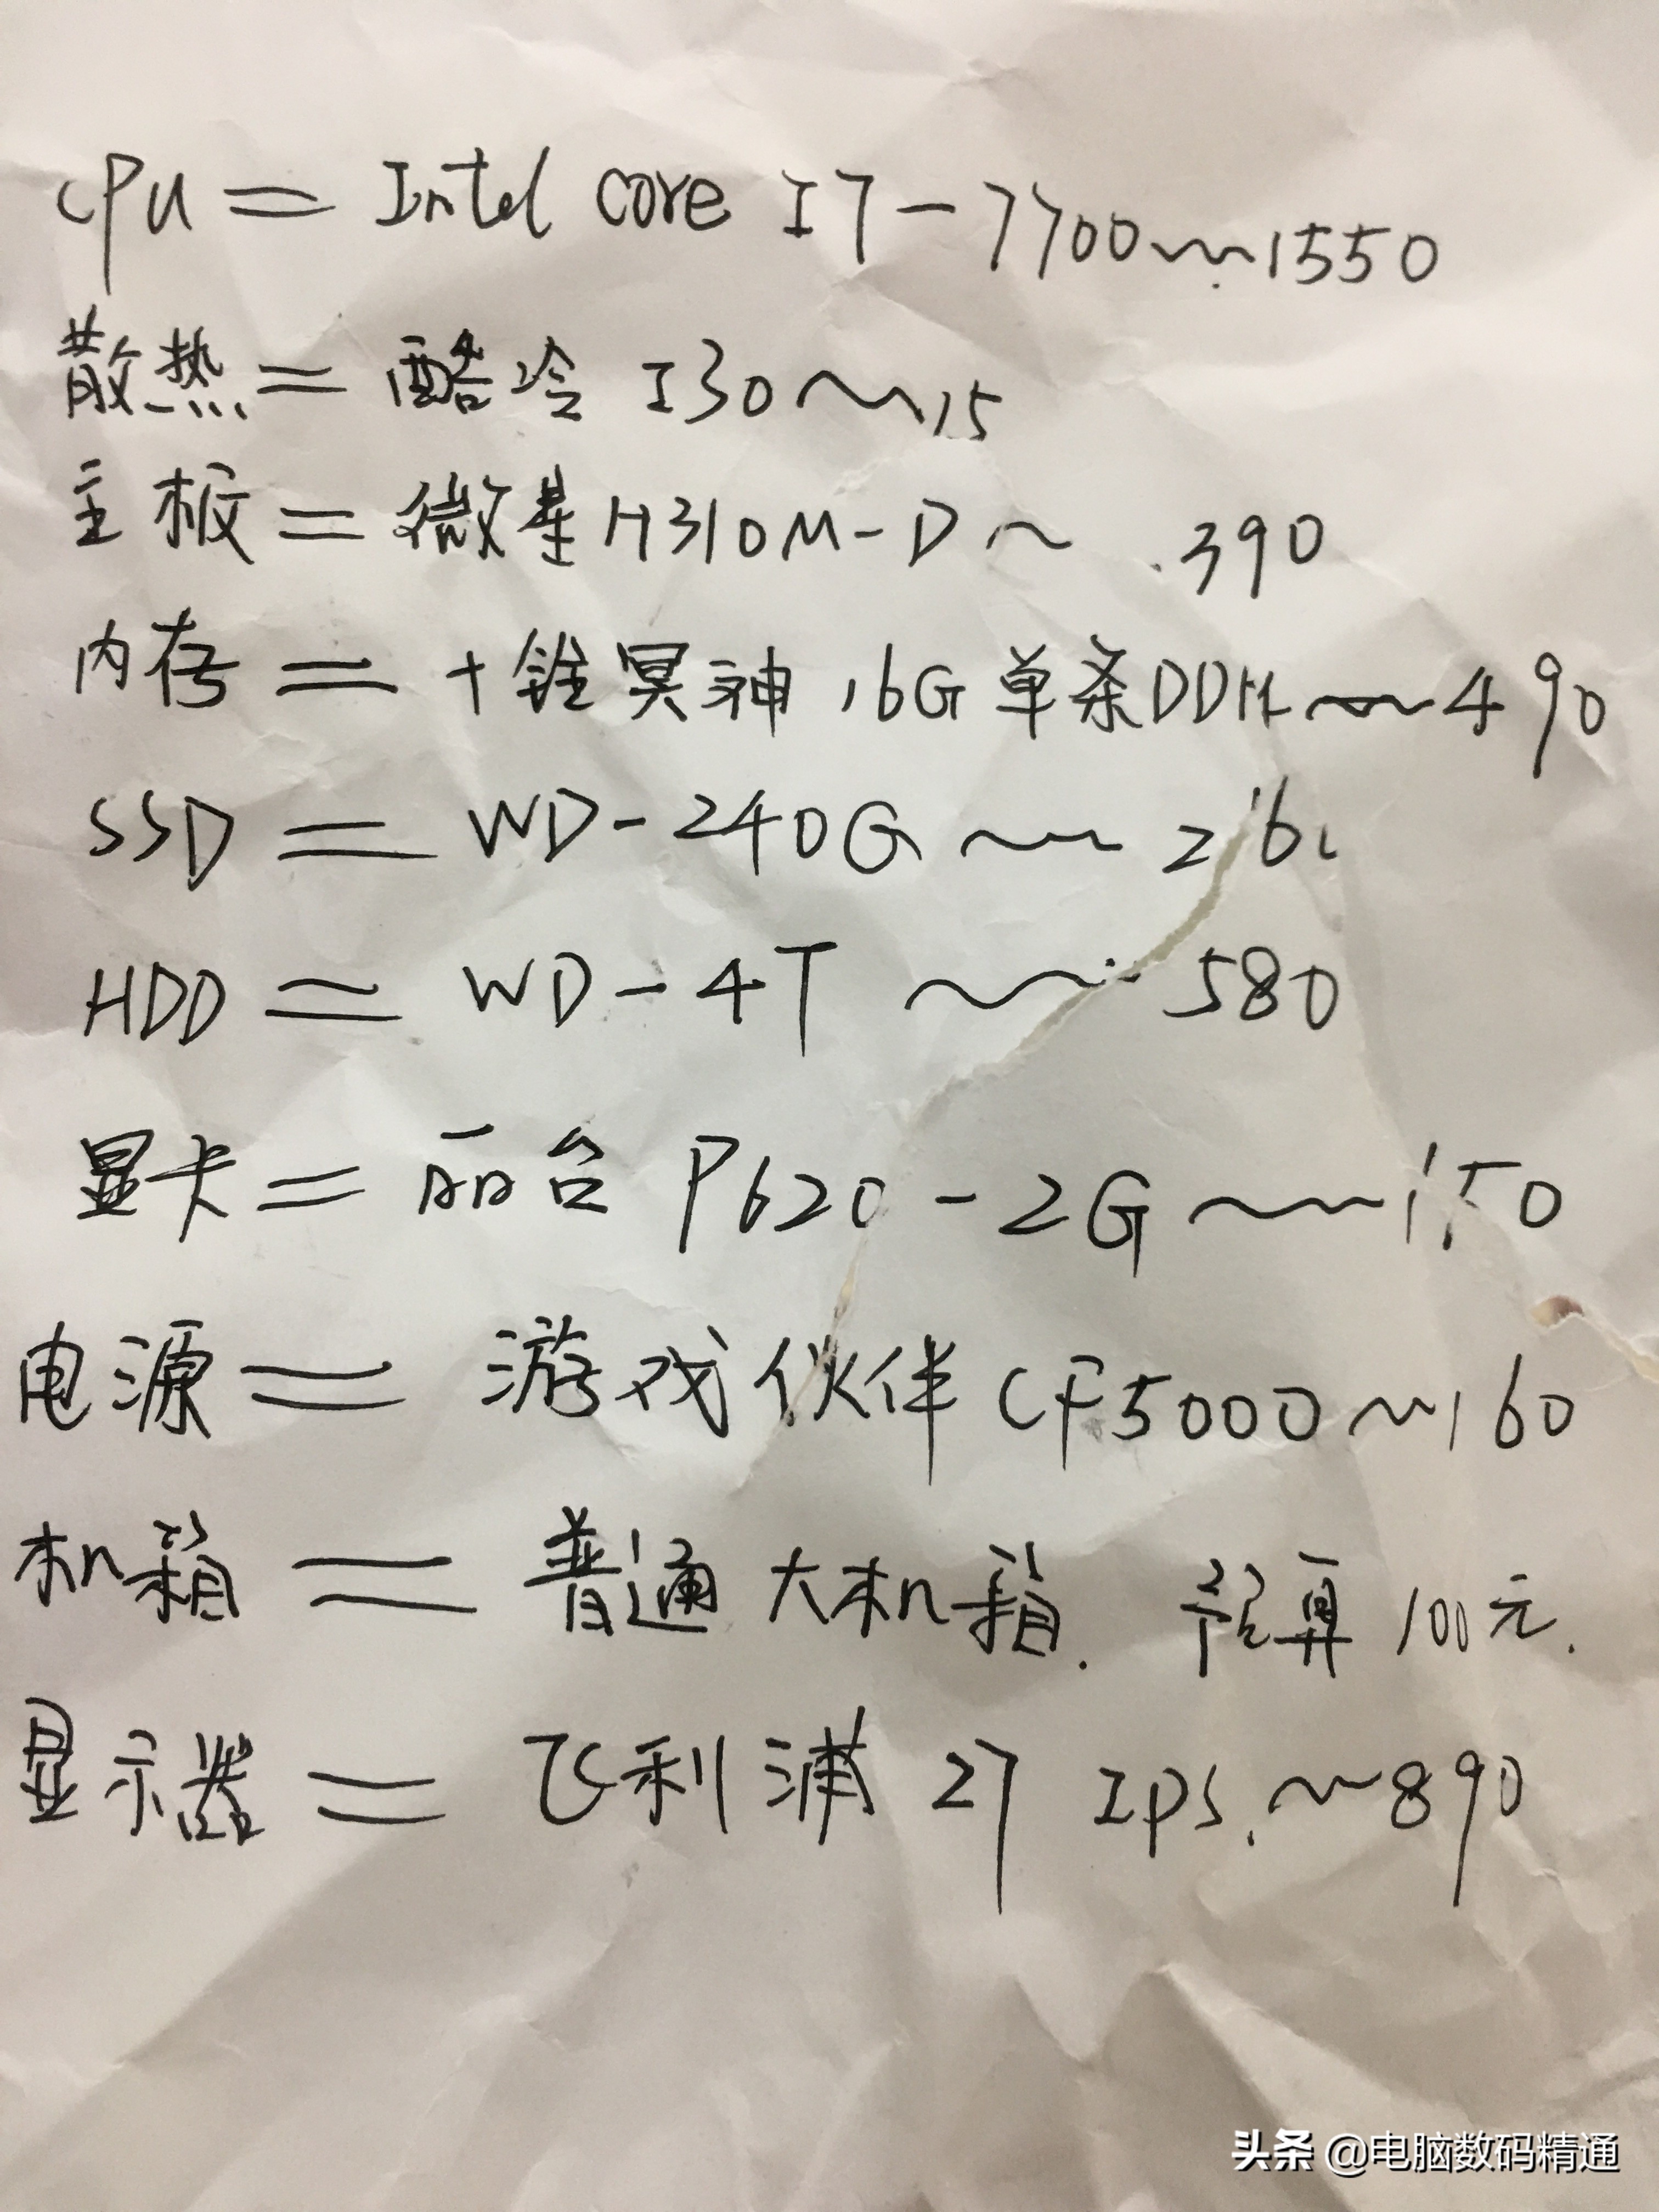 CPU = Intel core I7-7700~1550
散热 = 酷冷 I30~15
主板 = 微星H310M-D~390
内存 = 十铨冥神 16G单条DDR~490
SSD = WD-240G~
HDD = WD-4T~580
显卡 = 丽台 P620-2G~
电源 = 游戏伙伴 CF5000~160
机箱 = 普通大机箱. 预算100元.
显示器 = 飞利浦 27 IPS.~890
头条 @电脑数码精通